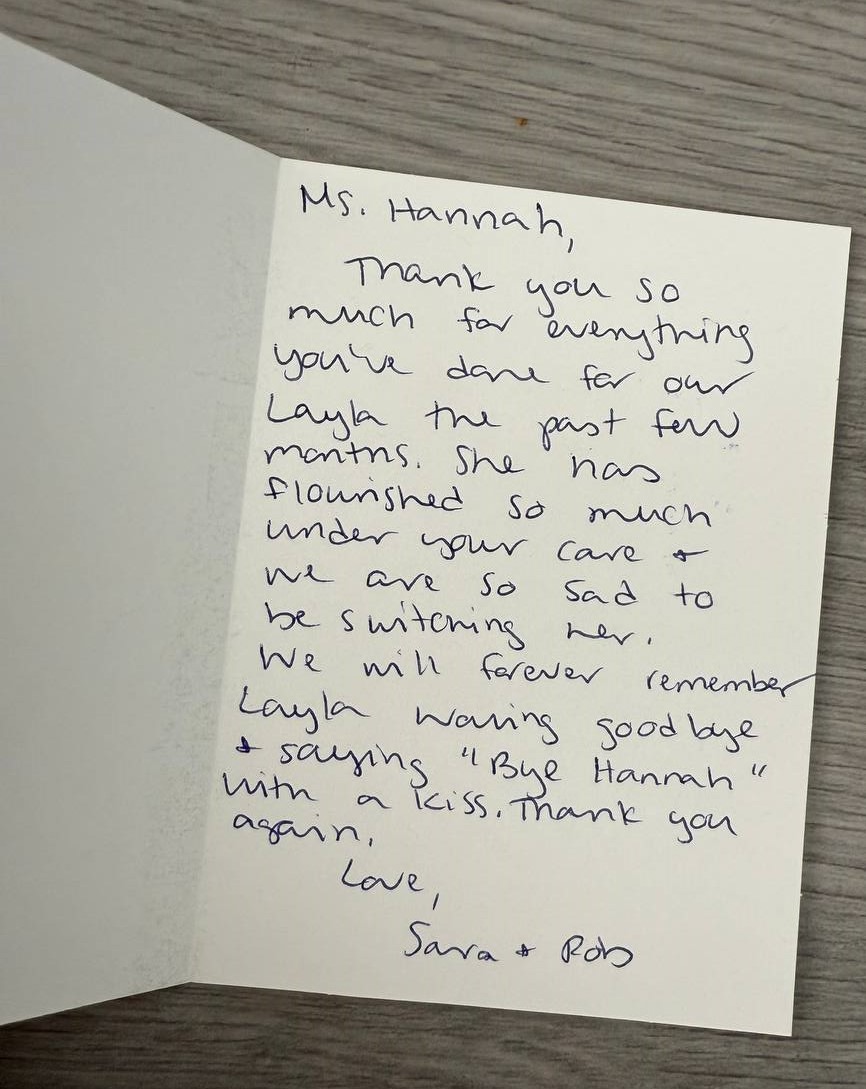 Ms. Hannah,
Thank you so
much for everything
you've done for our
Layla the past few
months. She has
flourished so much
under your care +
we are so sad to
be switching her.
We will forever remember
Layla waving goodbye
+ saying "Bye Hannah"
with a kiss. Thank you
again.
Love,
Sara + Rob